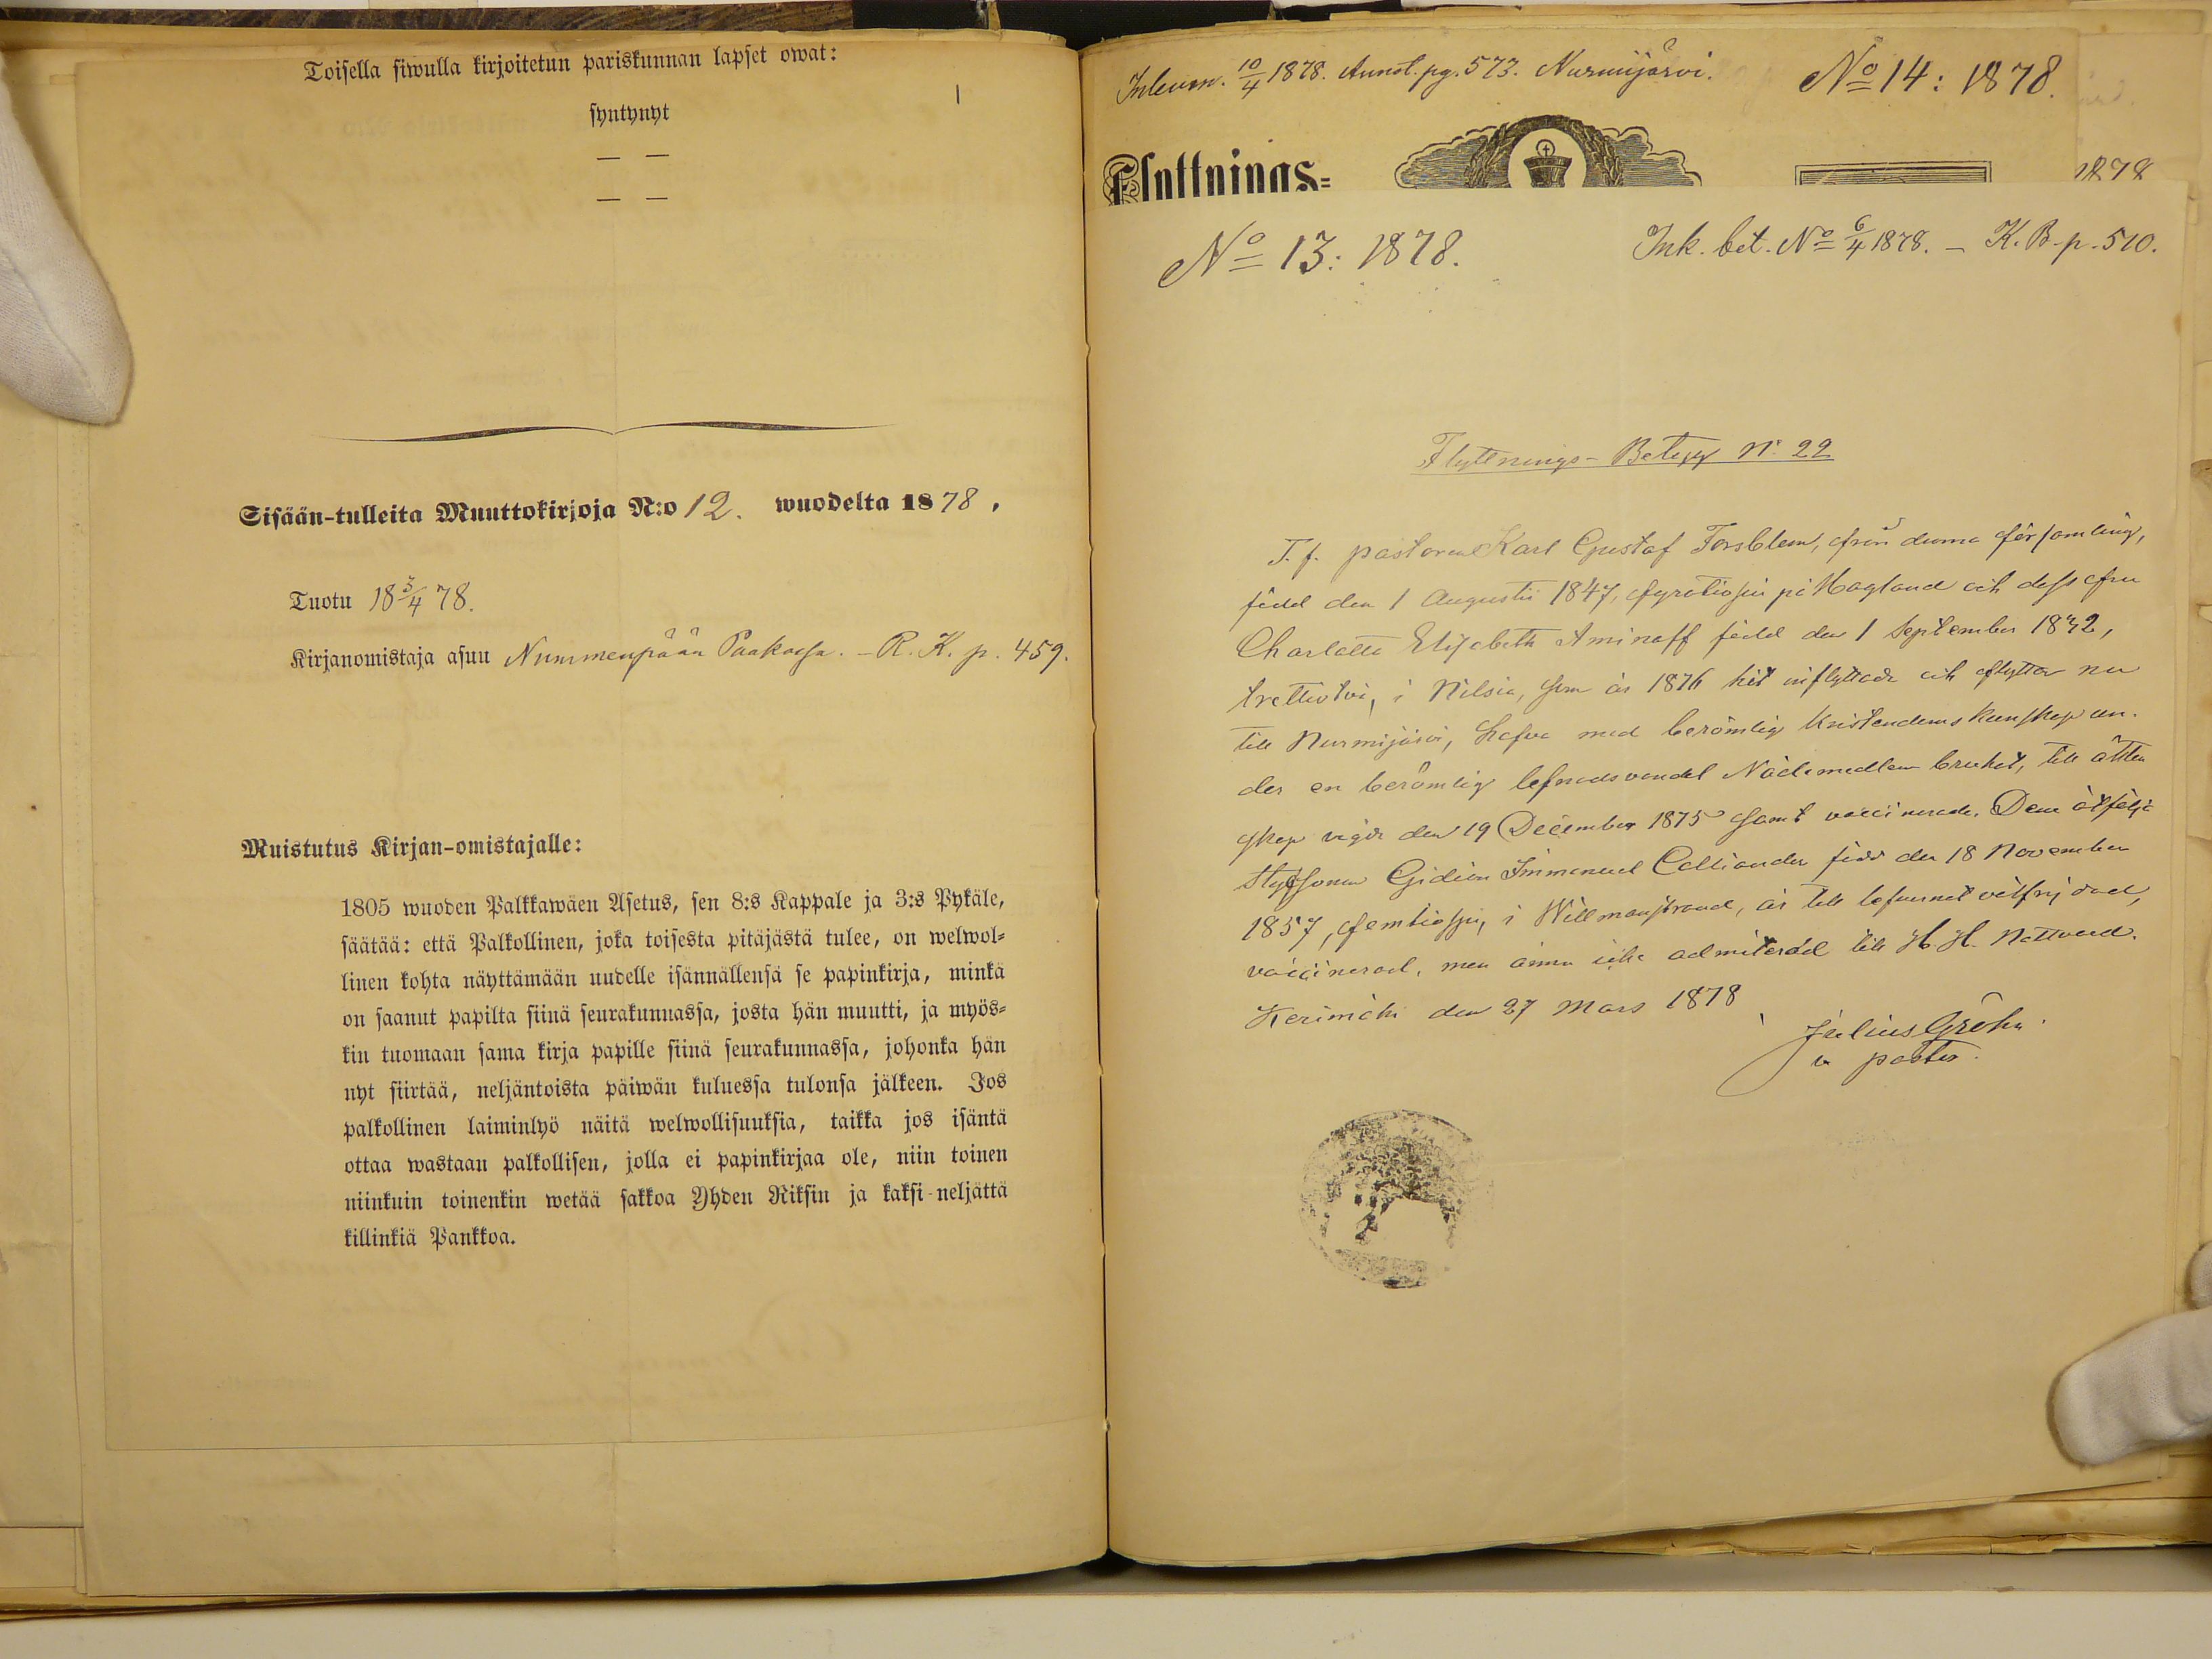 Toisella siwulla kirjoitetun pariskunnan lapset owat:
syntynyt
— —
— —
Sisään-tulleita Muuttokirjoja N:o 12. wuodelta 1878.
Tuotu 18 5/4 78.
Kirjanomistaja asuu Nummenpään Paakassa. – R. K. p. 459.
Muistutus Kirjan-omistajalle:
1805 wuoden Palkkawäen Asetus, sen 8:s Kappale ja 3:s Pykäle,
säätää: että Palkollinen, joka toisesta pitäjästä tulee, on welwol-
linen kohta näyttämään uudelle isännällensä se papinkirja, minkä
on saanut papilta siinä seurakunnassa, josta hän muutti, ja myös-
kin tuomaan sama kirja papille siinä seurakunnassa, johonka hän
nyt siirtää, neljäntoista päiwän kuluessa tulonsa jälkeen. Jos
palkollinen laiminlyö näitä welwollisuuksia, taikka jos isäntä
ottaa wastaan palkollisen, jolla ei papinkirjaa ole, niin toinen
niinkuin toinenkin wetää sakkoa Yhden Riksin ja kaksi-neljättä
killinkiä Pankkoa.
10/4 1878. pg. 573. Nurmijärvi. No 14: 1878.
Flyttnings-
1878
No 13: 1878. Ink. bet. No 6/4 1878. – K. B. p. 510.
Flyttnings-Betyg No 22
T. f. pastoren Karl Gustaf Forsblom, från denna församling,
född den 1 Augusti 1847, fyratiosju på Hogland och dess fru
Charlotta Elisabeth Aminoff född den 1 September 1842,
i Nilsiä, som år 1876 hit inflyttade och flyttar nu
till Nurmijärvi, hafva med berömlig kristendomskunskap un-
der en berömlig lefnadsvandel Nådemedlen brukat, till äkten
skap vigde den 19 December 1875 samt vaccinerade. Dem åtfölja
styfsonen Gideon Immanuel Calliander född den 18 November
1857, femtiosju, i Willmanstrand, är till lefvernet välfrejdad,
vaccinerad, men ännu icke admitterad till H. H. Nattvard.
Kerimäki den 27 Mars 1878
Julius Gröhn.
v pastor.